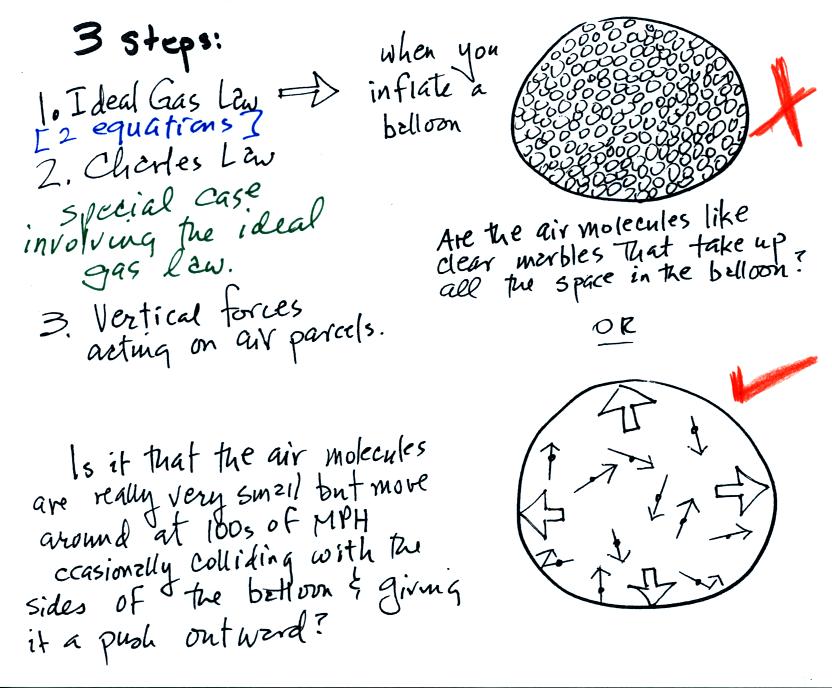 3 steps:
1. Ideal Gas Law
[2 equations]
2. Charles Law
special case
involving the ideal
gas law.
3. Vertical forces
acting on air parcels.
when you
inflate a
balloon
Are the air molecules like
clear marbles that take up
all the space in the balloon?
OR
Is it that the air molecules
are really very small but move
around at 100s of MPH
ccasionally colliding with the
sides of the balloon & giving
it a push outward?